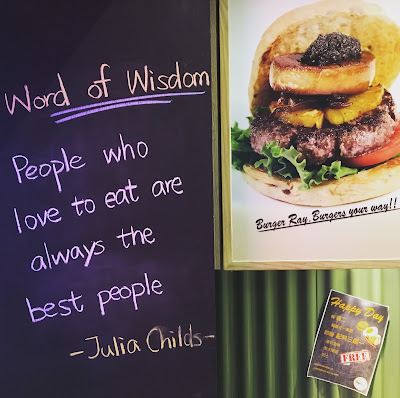 Word of Wisdom
People who
love to eat are
always the
best people
-Julia Childs-
Burger Ray, Burgers your way!!
Happy Day
FREE